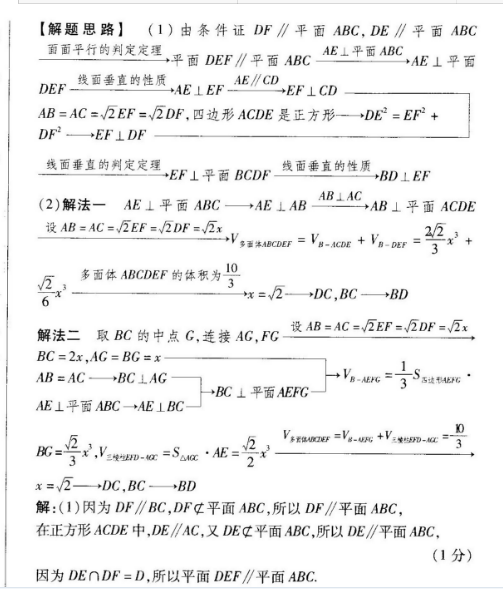 【解题思路】 (1)由条件证 DF∥平面 ABC,DE∥平面 ABC
面面平行的判定定理→平面 DEF∥平面 ABC AE⊥平面 ABC→AE⊥平面
DEF 线面垂直的性质→AE⊥EF AE∥CD→EF⊥CD
AB=AC=√2EF=√2DF,四边形 ACDE 是正方形→DE²=EF²+
DF²→EF⊥DF
线面垂直的判定定理→EF⊥平面 BCDF 线面垂直的性质→BD⊥EF
(2)解法一 AE⊥平面 ABC→AE⊥AB AB⊥AC→AB⊥平面 ACDE
设 AB=AC=√2EF=√2DF=√2x→V多面体ABCDEF=V_{B-ACDE}+V_{B-DEF}=2√2/3 x³+
√2/6 x³ 多面体 ABCDEF 的体积为10/3→x=√2→DC,BC→BD
解法二 取 BC 的中点 G,连接 AG,FG 设 AB=AC=√2EF=√2DF=√2x
BC=2x,AG=BG=x
AB=AC→BC⊥AG
AE⊥平面 ABC→AE⊥BC
→BC⊥平面 AEFG
→V_{B-AEFG}=1/3 S四边形AEFG·
BG=√2/3 x³,V三棱柱EFD-AGC=S△AGC·AE=√2/2 x³ V多面体ABCDEF=V_{B-AEFG}+V三棱柱EFD-AGC=10/3→
x=√2→DC,BC→BD
解:(1)因为 DF∥BC,DF⊄平面 ABC,所以 DF∥平面 ABC,
在正方形 ACDE 中,DE∥AC,又 DE⊄平面 ABC,所以 DE∥平面 ABC,
(1分)
因为 DE∩DF=D,所以平面 DEF∥平面 ABC.